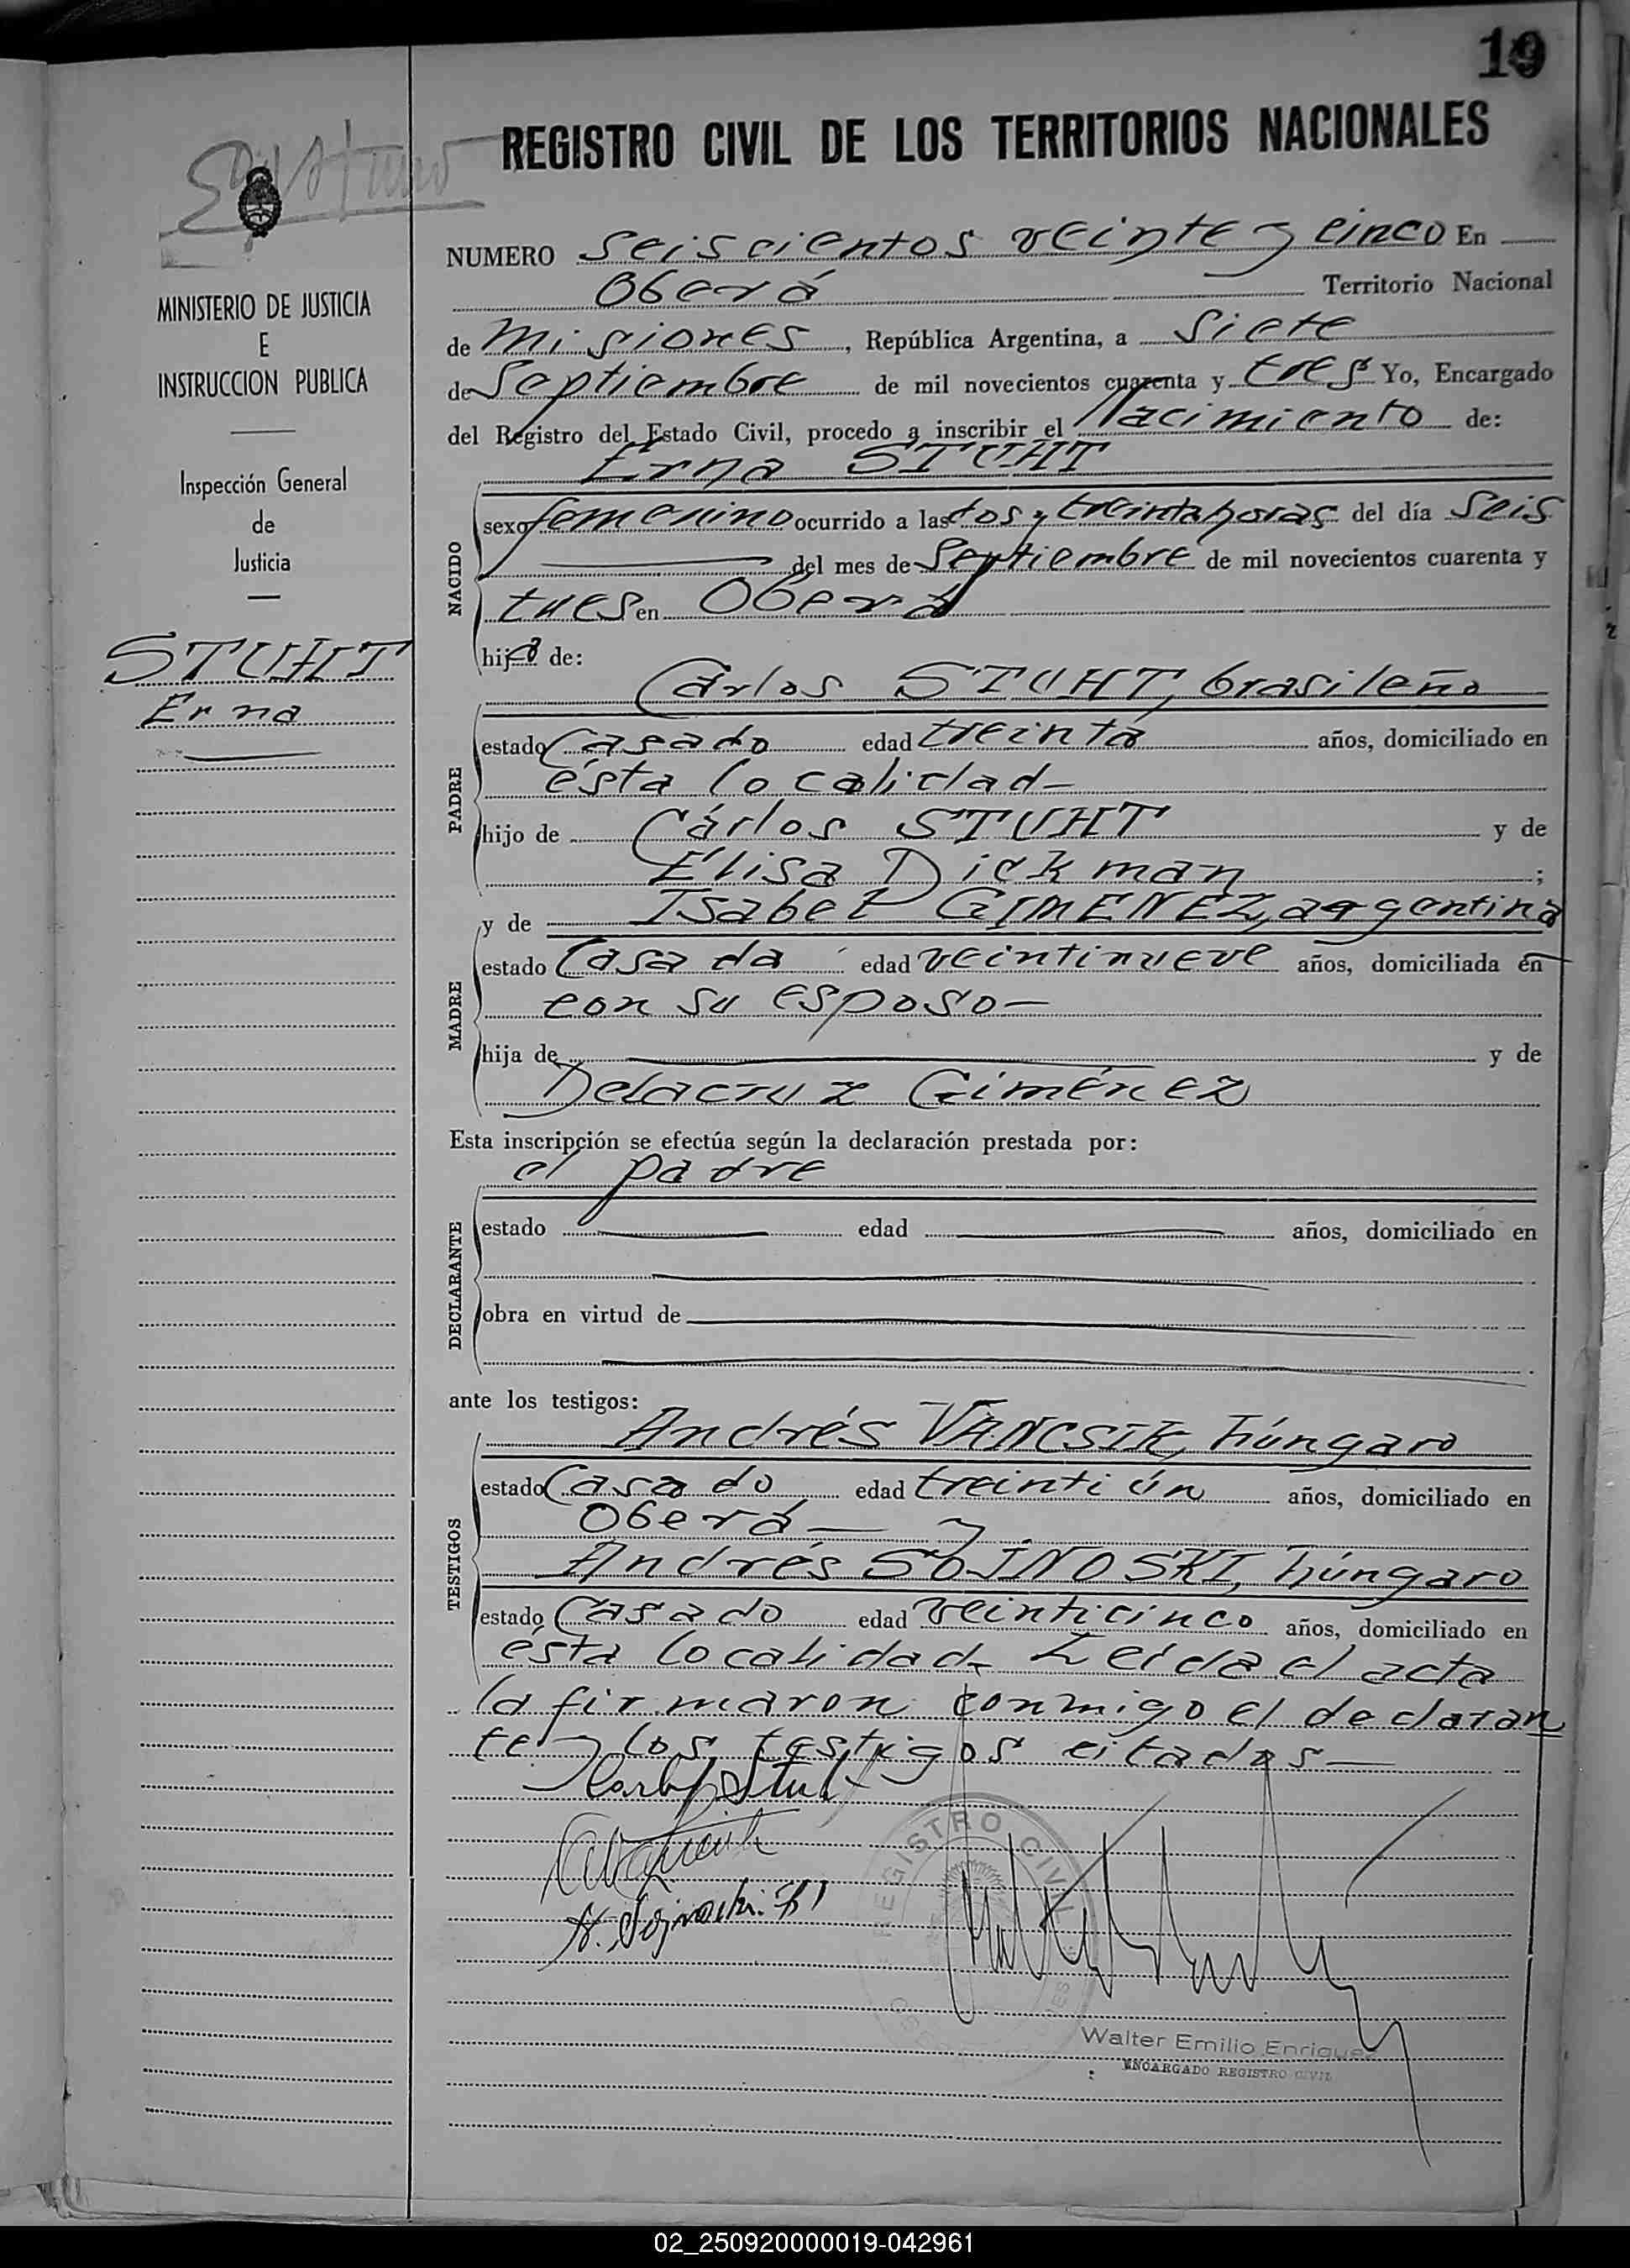 19
REGISTRO CIVIL DE LOS TERRITORIOS NACIONALES
MINISTERIO DE JUSTICIA
E
INSTRUCCION PUBLICA
Inspección General
de
Justicia
STUHT
Erna
NUMERO Seiscientos veinte y cinco En
Oberá Territorio Nacional
de Misiones, República Argentina, a Siete
de Septiembre de mil novecientos cuarenta y tres Yo, Encargado
del Registro del Estado Civil, procedo a inscribir el Nacimiento de:
Erna STUHT
NACIDO
sexo femenino ocurrido a las dos y treinta horas del día Seis
del mes de Septiembre de mil novecientos cuarenta y
tres en Oberá
hija de:
Carlos STUHT, brasileño
PADRE
estado Casado edad treinta años, domiciliado en
ésta localidad-
hijo de Cárlos STUHT y de
Elisa Dickman ;
y de Isabel GIMENEZ, argentina
MADRE
estado Casada edad veintinueve años, domiciliada en
con su esposo-
hija de y de
Delacruz Giménez
Esta inscripción se efectúa según la declaración prestada por:
el padre
DECLARANTE
estado edad años, domiciliado en
obra en virtud de
ante los testigos:
Andrés VANCSIK, húngaro
TESTIGOS
estado Casado edad treintiún años, domiciliado en
Oberá- y
Andrés SOJNOSKI, húngaro
estado Casado edad veinticinco años, domiciliado en
ésta localidad- Leída el acta
la firmaron conmigo el declaran
te y los testigos citados-
Carlos Stuht
REGISTRO CIVIL
Walter Emilio Enriquez
ENCARGADO REGISTRO CIVIL
02_250920000019-042961